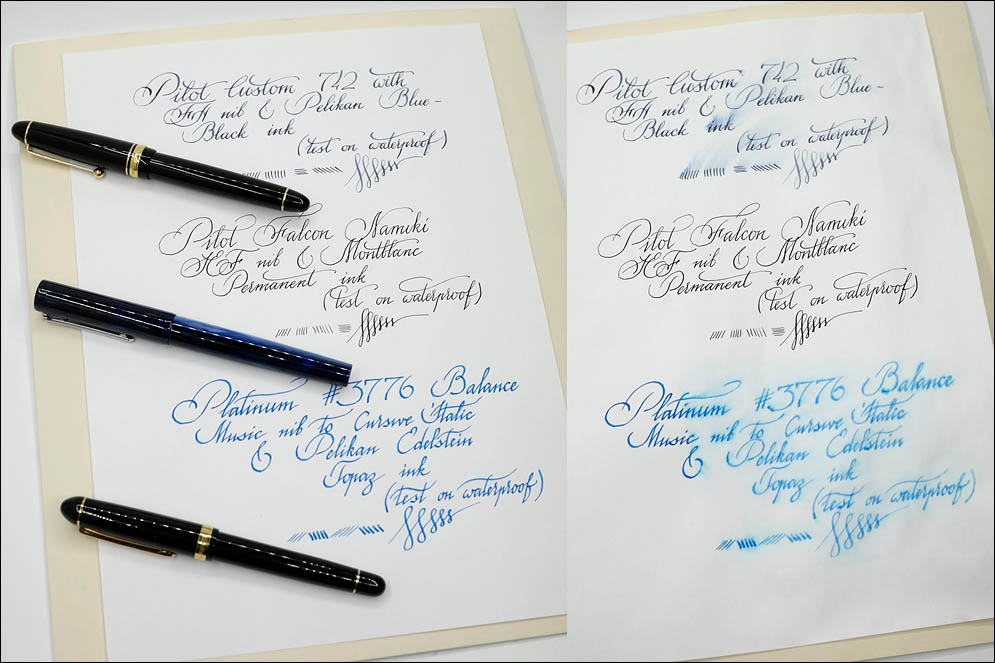 Pilot Custom 742 with
FA nib & Pelikan Blue-
Black ink
(test on waterproof)
Pilot Falcon Namiki
SEF nib & Montblanc
Permanent ink
(test on waterproof)
Platinum #3776 Balance
Music nib to Cursive Italic
& Pelikan Edelstein
Topaz ink
(test on waterproof)
Pilot Custom 742 with
FA nib & Pelikan Blue-
Black ink
(test on waterproof)
Pilot Falcon Namiki
SEF nib & Montblanc
Permanent ink
(test on waterproof)
Platinum #3776 Balance
Music nib to Cursive Italic
& Pelikan Edelstein
Topaz ink
(test on waterproof)